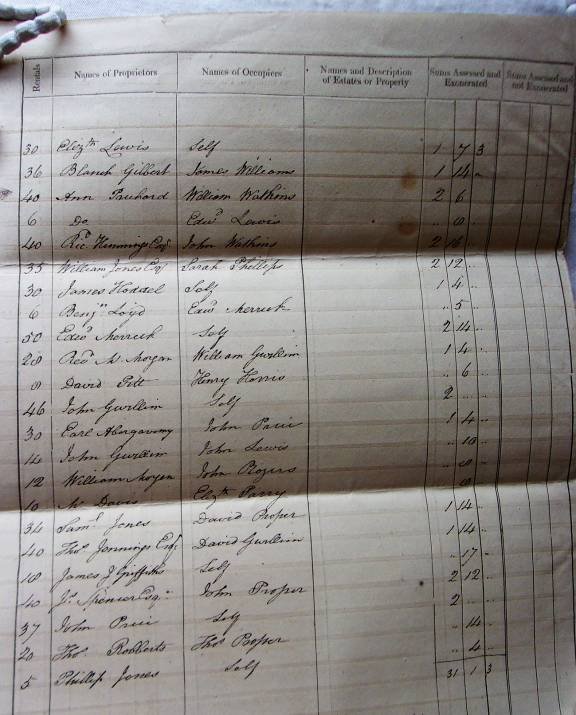 Rentals Names of Proprietors Names of Occupiers Names and Description of Estates or Property Sums Assessed and Exonerated Sums Assessed and not Exonerated
30 Elizth Lewis Self 1 7 3
36 Blanch Gilbert James Williams 1 14 "
40 Ann Prichard William Watkins 2 6 "
6 Do Edwd Lewis " 8 "
40 Ricd Hemmings Esqr John Watkins 2 16 "
35 William Jones Esqr Sarah Phillips 2 12 "
30 James Hoddel Self 1 4 "
6 Benjn Loyd Edwd Merrick " 5 "
50 Edwd Merrick Self 2 14 "
28 Revd Morgan William Gwillim 1 4 "
8 David Pitt Henry Harris " 6 "
46 John Gwillim Self 2 " "
30 Earl Abergavenny John Price 1 4 "
14 John Gwillim John Lewis " 10 "
12 William Morgan John Rogers " 8 "
10 Mr Davis Elizth Parry " 8 "
34 Saml Jones David Proper 1 14 "
40 Thos Jennings Esqr David Gwillim 1 14 "
18 James J Griffiths Self " 17 "
40 Js Spencer Esqr John Proper 2 12 "
37 John Price Self 2 " "
20 Thos Robberts Thos Proper " 14 "
5 Phillip Jones Self " 4 "
31 1 3